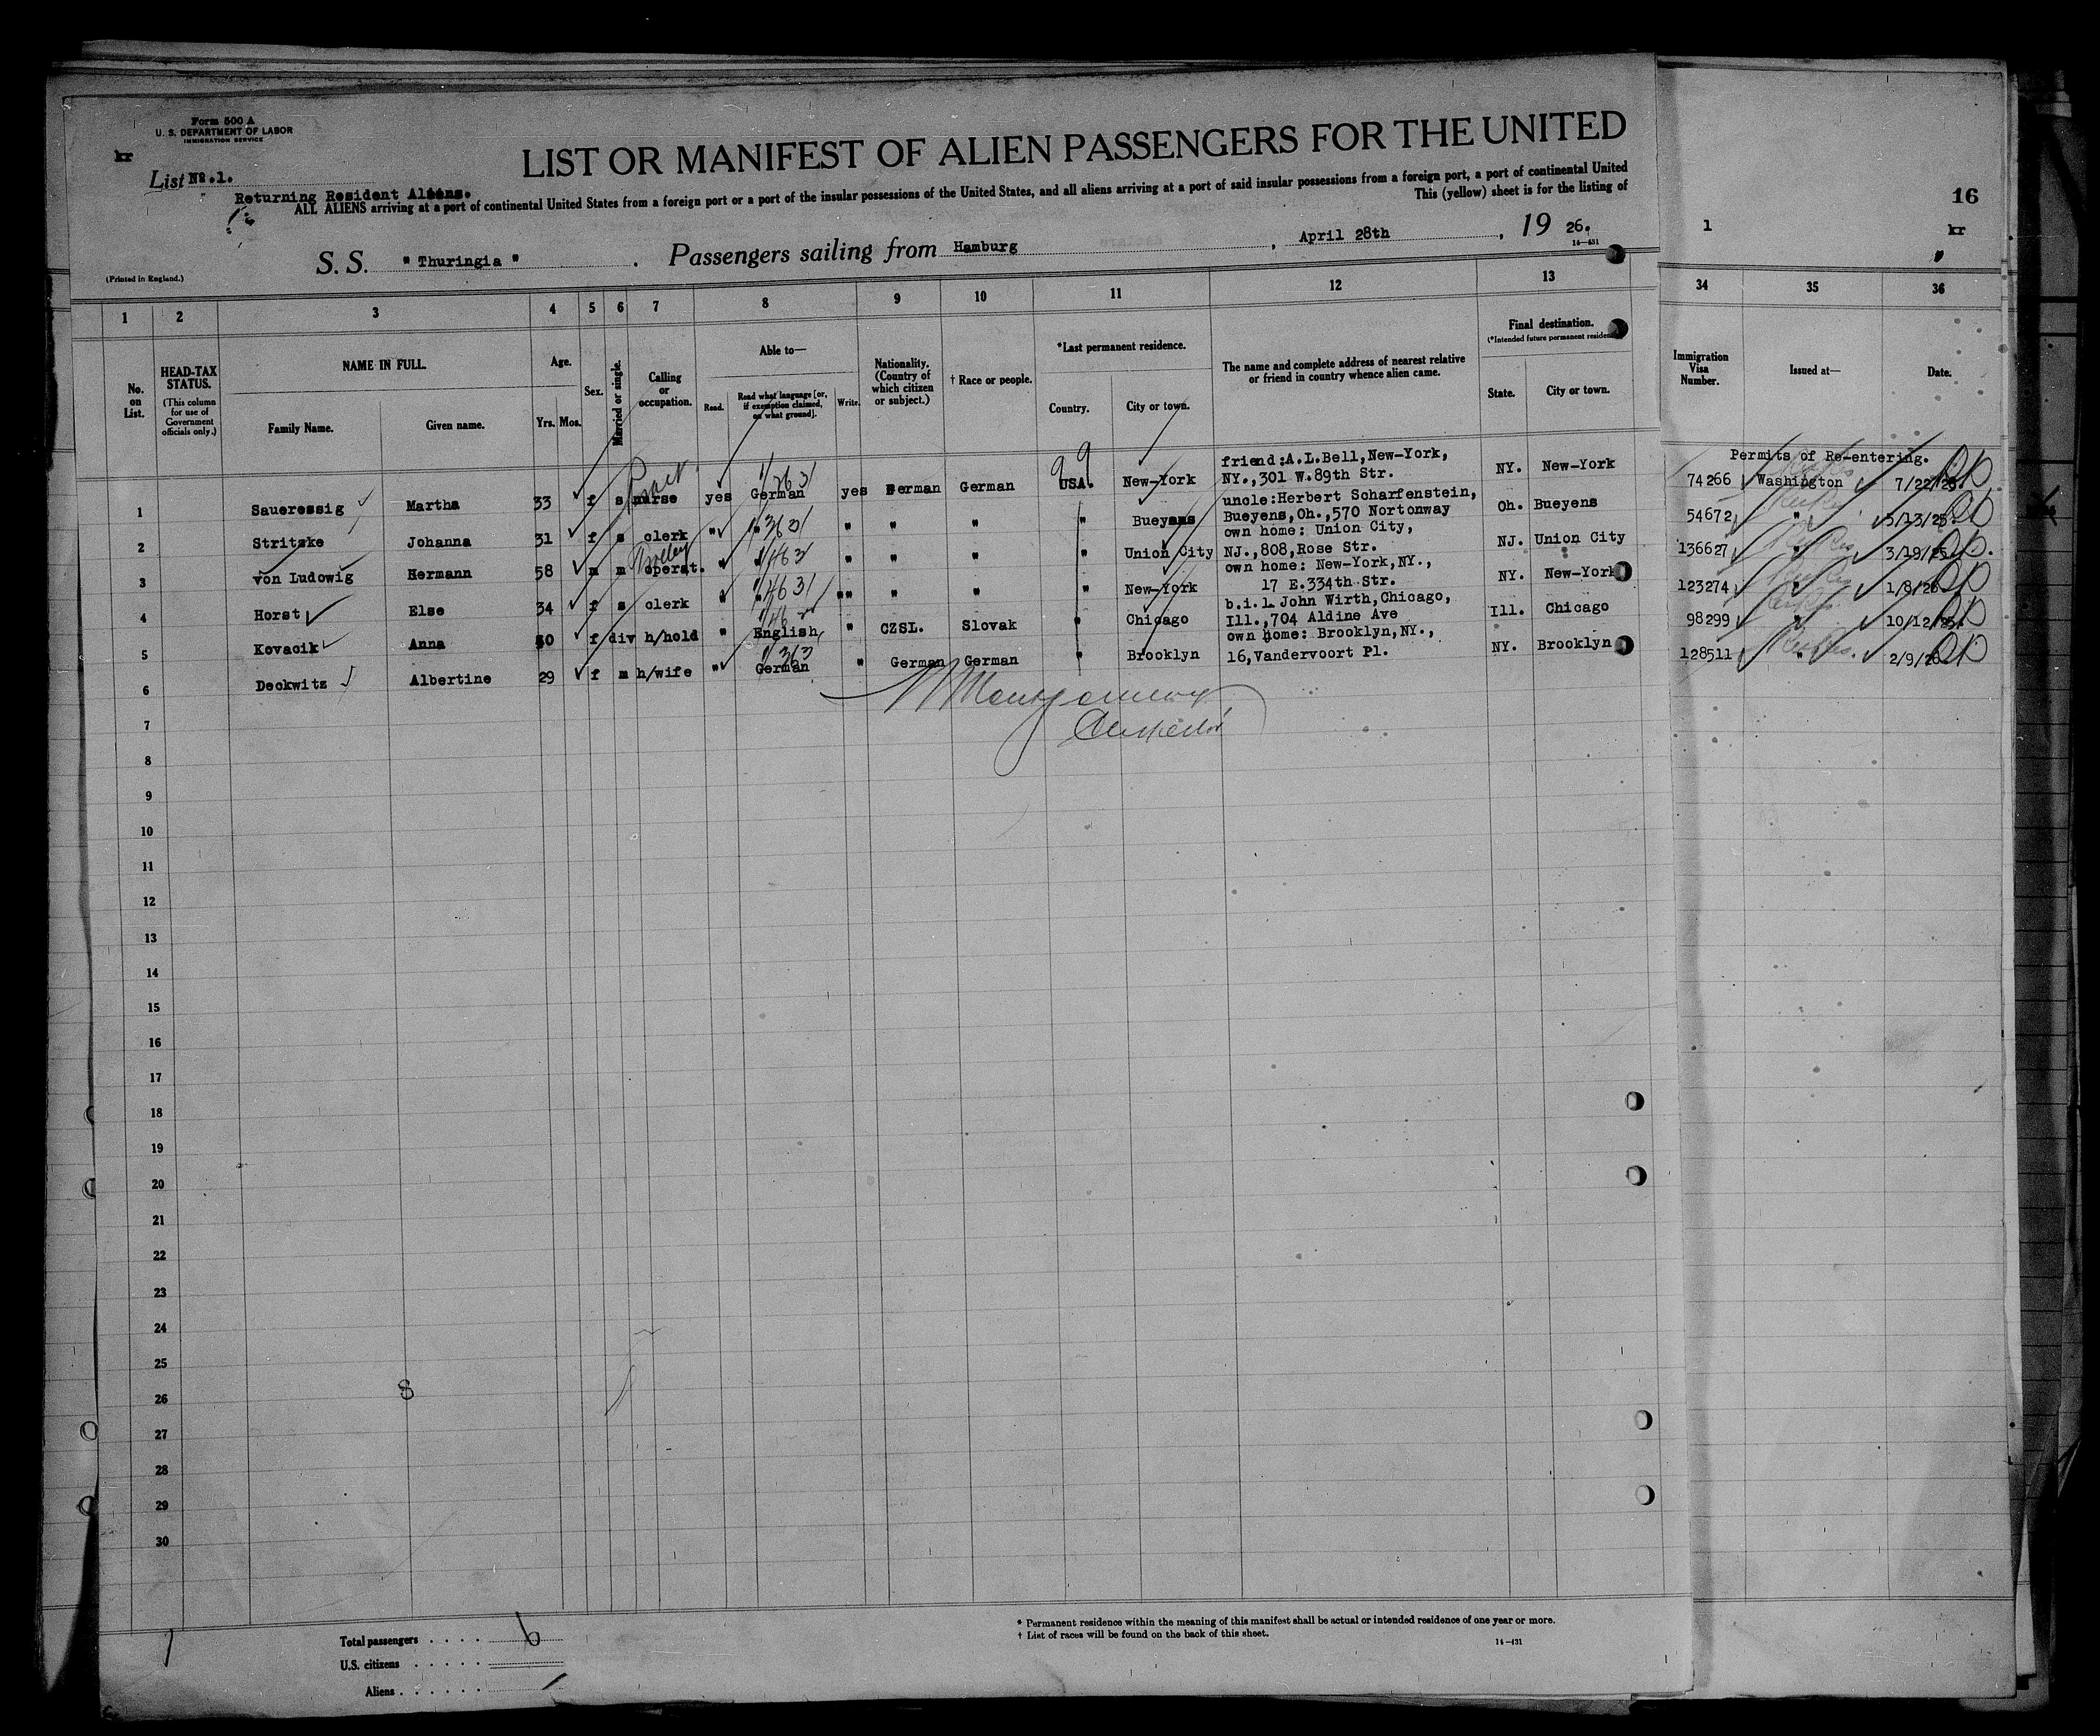 Form 500 A
U. S. DEPARTMENT OF LABOR
IMMIGRATION SERVICE
kr
List No.1.
Returning Resident Aliens.
LIST OR MANIFEST OF ALIEN PASSENGERS FOR THE UNITED
ALL ALIENS arriving at a port of continental United States from a foreign port or a port of the insular possessions of the United States, and all aliens arriving at a port of said insular possessions from a foreign port, a port of continental United
This (yellow) sheet is for the listing of
S. S. "Thuringia". Passengers sailing from Hamburg, April 28th, 19 26.
14—431
(Printed in England.)
16
1 kr
1 2 3 4 5 6 7 8 9 10 11 12 13 34 35 36
No. on List.
HEAD-TAX STATUS.
(This column for use of Government officials only.)
NAME IN FULL.
Family Name. Given name.
Age.
Yrs. Mos.
Sex.
Married or single.
Calling or occupation.
Able to—
Read. Read what language [or, if exemption claimed, on what ground]. Write.
Nationality. (Country of which citizen or subject.)
† Race or people.
*Last permanent residence.
Country. City or town.
The name and complete address of nearest relative or friend in country whence alien came.
Final destination.
(*Intended future permanent residence.)
State. City or town.
Immigration Visa Number.
Issued at—
Date.
Permits of Re-entering.
1 Saueressig Martha 33 f s nurse yes German yes German German USA. New-York friend:A.L.Bell,New-York, NY.,301 W.89th Str. NY. New-York 74266 Washington 7/22/25
2 Stritzke Johanna 31 f s clerk " " " " " " Bueyens uncle:Herbert Scharfenstein, Bueyens,Oh.,570 Nortonway Oh. Bueyens 54672 " 5/13/25
3 von Ludowig Hermann 58 m m operat. " " " " " " Union City own home: Union City, NJ.,808,Rose Str. NJ. Union City 136627 " 3/19/25
4 Horst Else 34 f s clerk " " "" " " " New-York own home: New-York,NY., 17 E.334th Str. NY. New-York 123274 " 1/8/26
5 Kovacik Anna 50 f div h/hold " English " CZSL. Slovak " Chicago b.i.l. John Wirth,Chicago, Ill.,704 Aldine Ave Ill. Chicago 98299 10/12/25.
6 Deckwitz Albertine 29 f m h/wife " German " German German " Brooklyn own home: Brooklyn,NY., 16,Vandervoort Pl. NY. Brooklyn 128511 " 2/9/26
Montgomery
7
8
9
10
11
12
13
14
15
16
17
18
19
20
21
22
23
24
25
26 8
27
28
29
30
Total passengers . . . . 6
U.S. citizens . . . . .
Aliens . . . . . .
* Permanent residence within the meaning of this manifest shall be actual or intended residence of one year or more.
† List of races will be found on the back of this sheet.
14—431